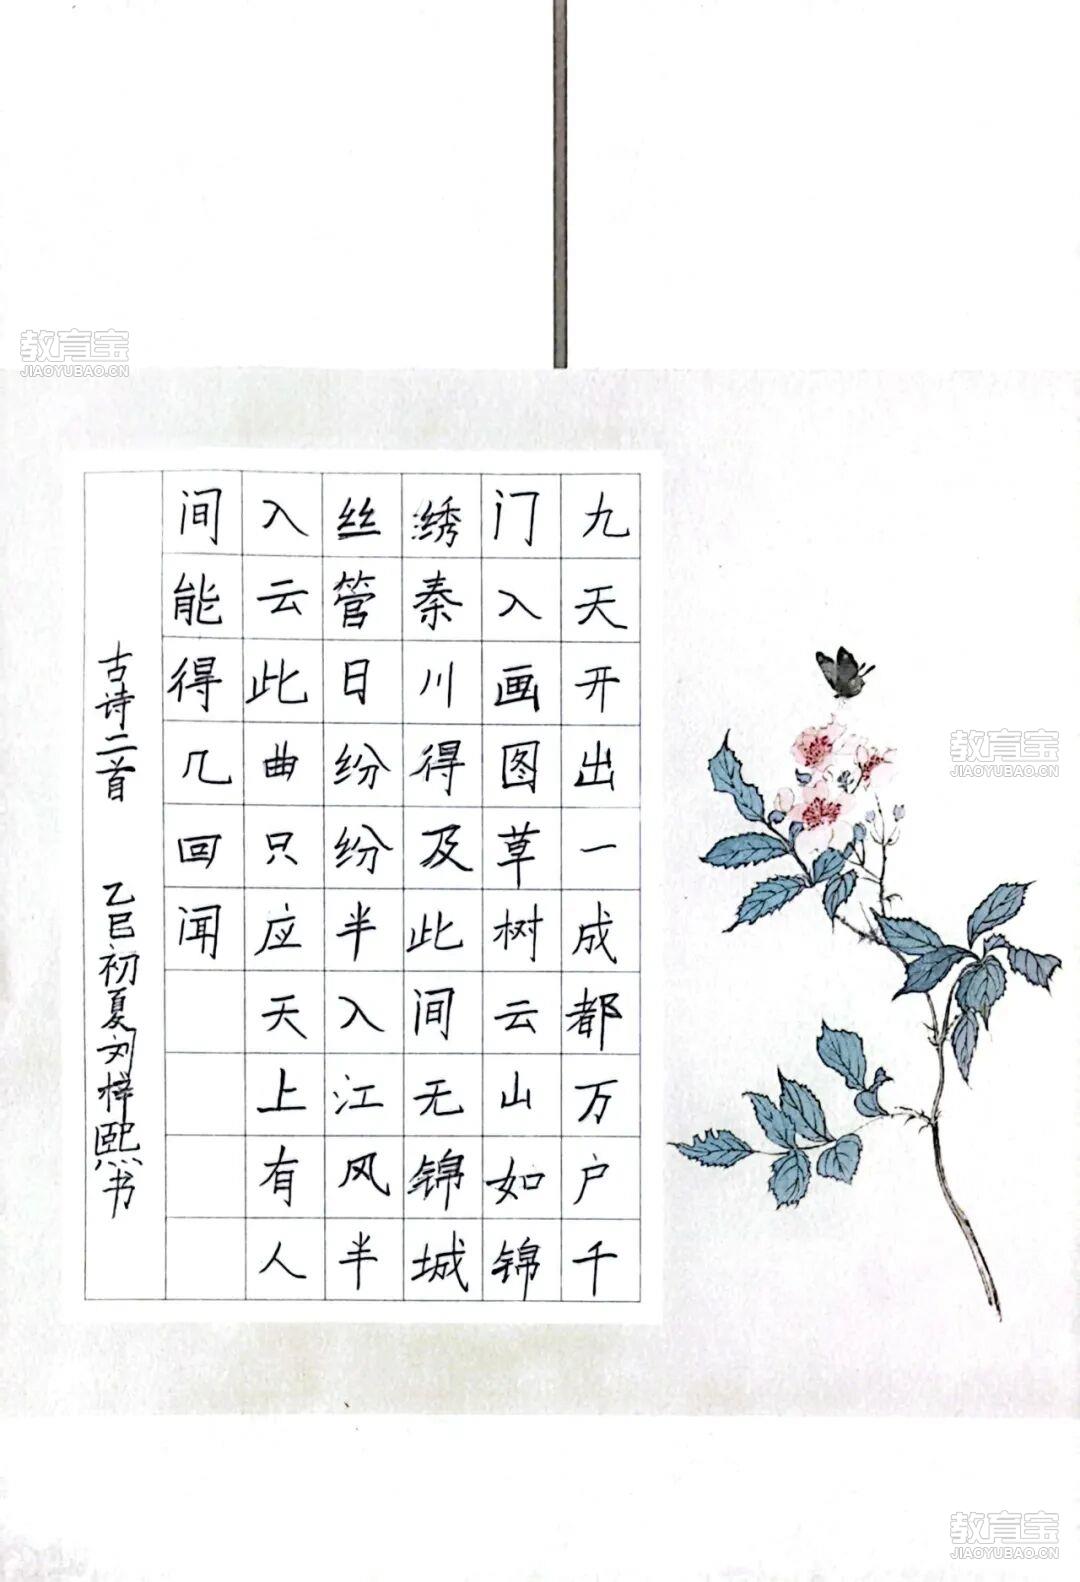 九天开出一成都万户千
门入画图草树云山如锦
绣秦川得及此间无锦城
丝管日纷纷半入江风半
入云此曲只应天上有人
间能得几回闻
古诗二首 乙巳初夏刘梓熙书
教育宝
JIAOYUBAO.CN
教育宝
JIAOYUBAO.CN
教育宝
JIAOYUBAO.CN